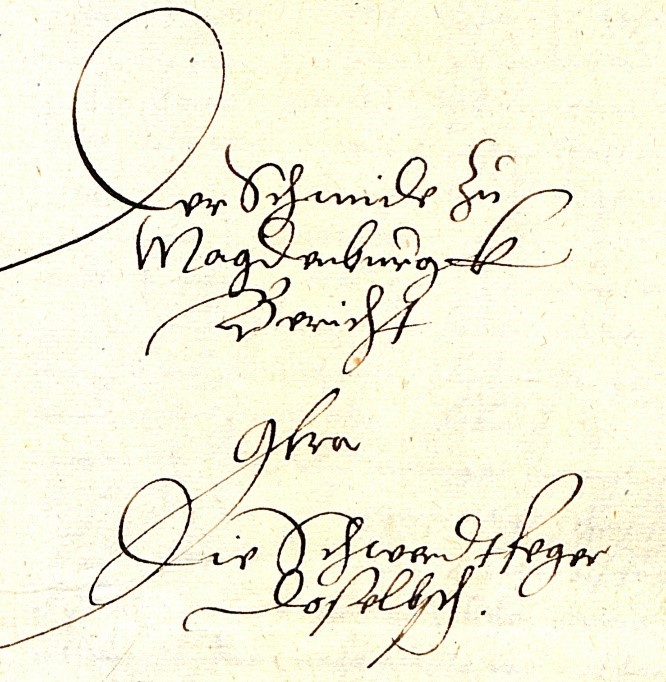 Der Schmide Zu
Magdenburgk
Bericht
Contra
Die Schwerdtfeger
Doselbsth.